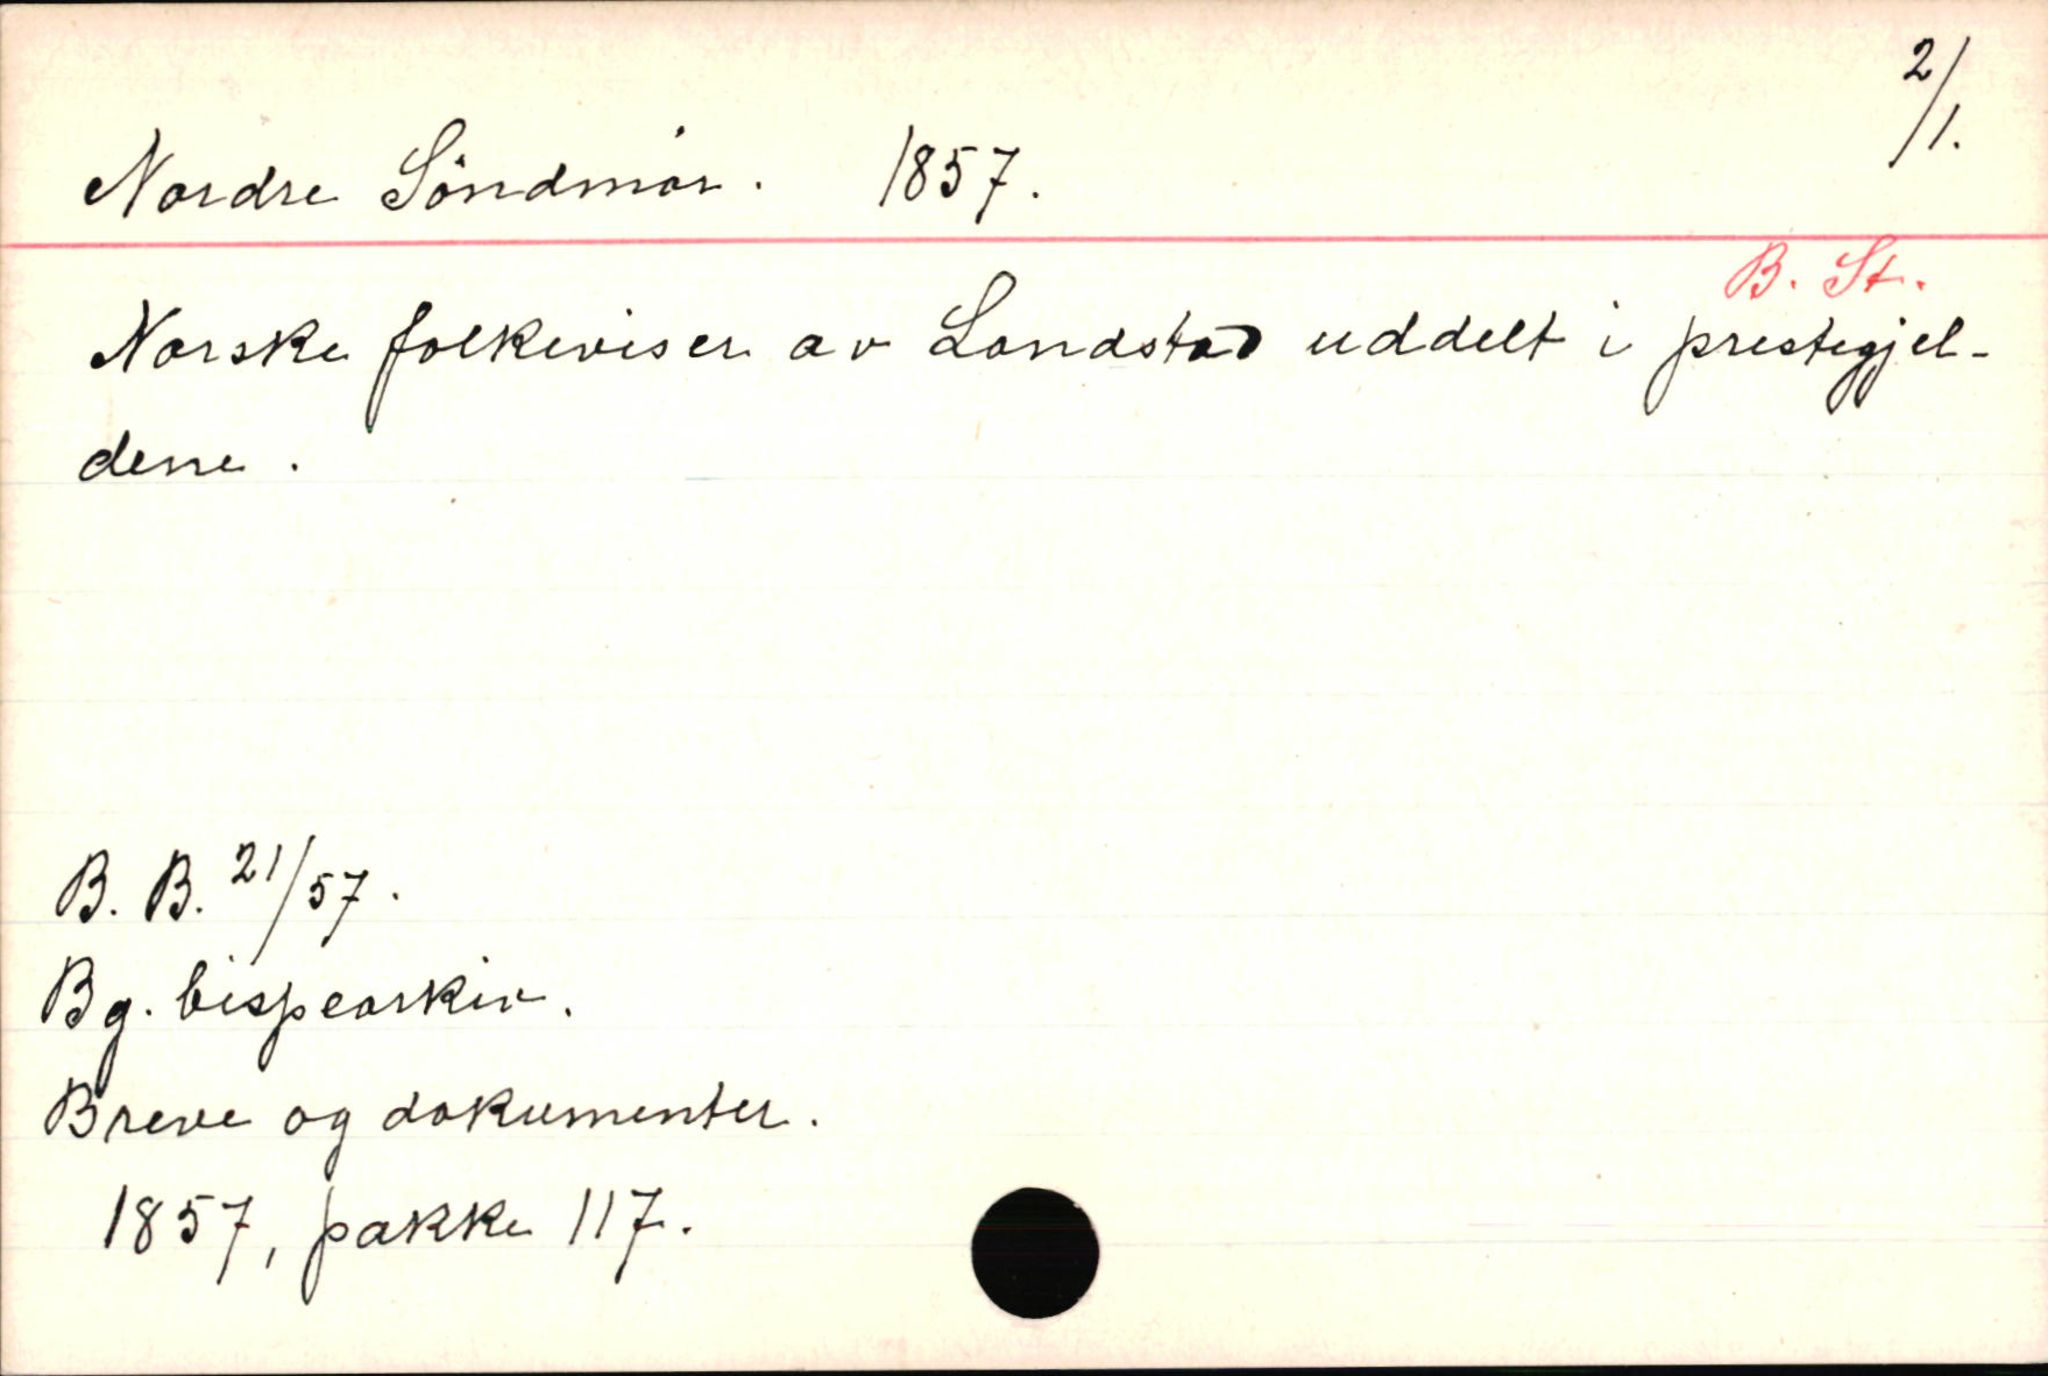 2/1.
Nordre Söndmör. 1857.
B. St.
Norske folkeviser av Landstad uddelt i prestegjel-
dene.
B. B. 21/57.
Bg. bispearkiv.
Breve og dokumenter.
1857, pakke 117.